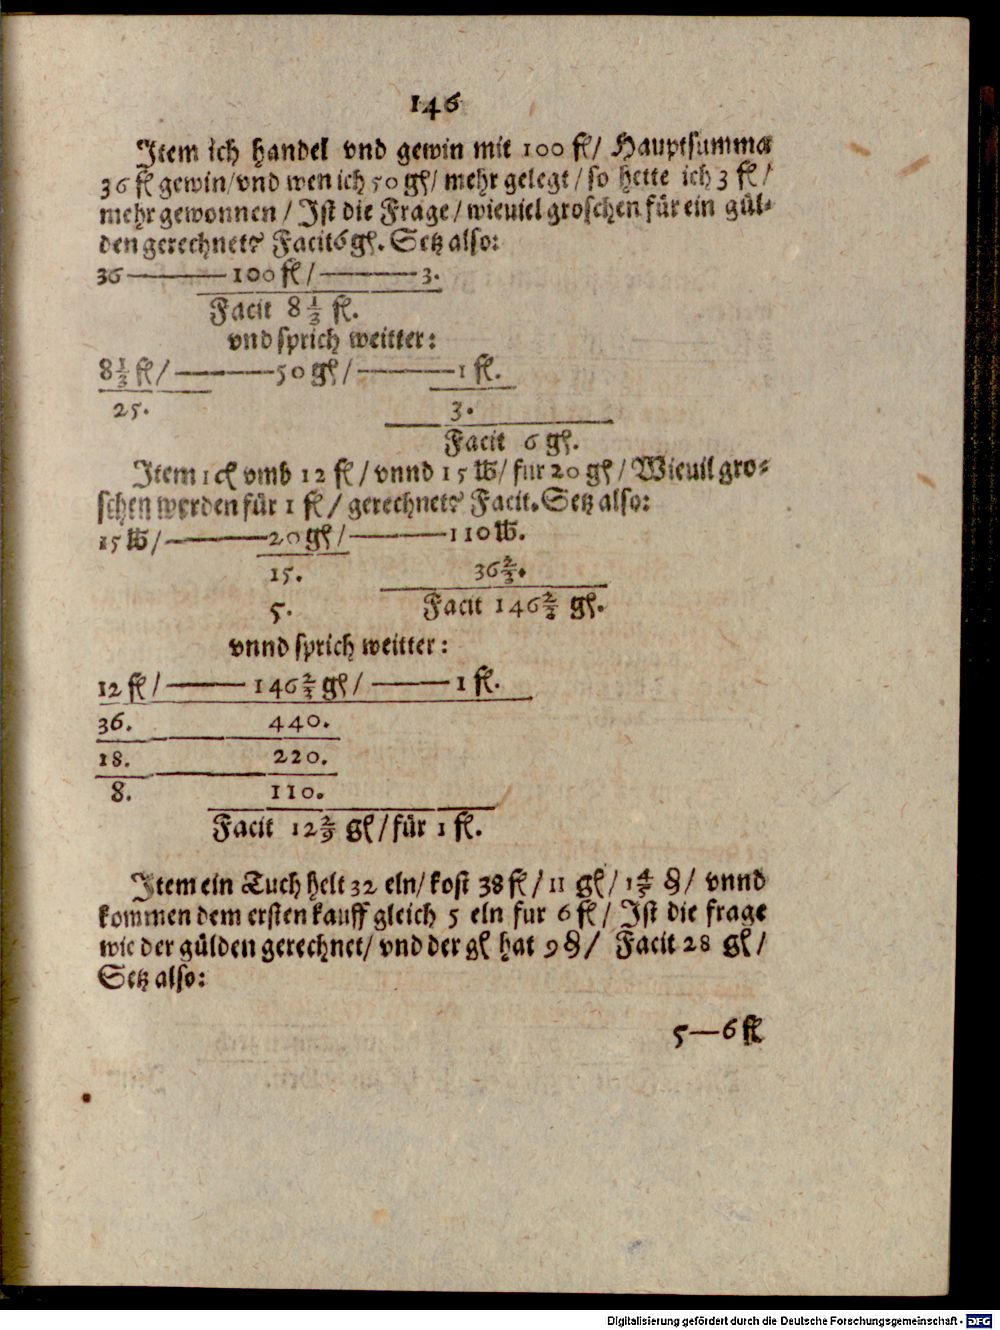 146
Item ich handel vnd gewin mit 100 fl/ Hauptsumma
36 fl gewin/vnd wen ich 50 gl/ mehr gelegt/so hette ich 3 fl/
mehr gewonnen / Ist die Frage/wieuiel groschen für ein gül-
den gerechnet? Facit 6 gl. Setz also:
36 — 100 fl / — 3.
Facit 8 1/3 fl.
vnd sprich weitter:
8 1/3 fl / — 50 gl / — 1 fl.
25. 3.
Facit 6 gl.
Item 1 cl vmb 12 fl / vnnd 15 lb/ fur 20 gl / Wieuil gro-
schen werden für 1 fl / gerechnet? Facit. Setz also:
15 lb / — 20 gl / — 110 lb.
15. 36 2/3.
5. Facit 146 2/3 gl.
vnnd sprich weitter:
12 fl / — 146 2/3 gl / — 1 fl.
36. 440.
18. 220.
8. 110.
Facit 12 2/9 gl / für 1 fl.
Item ein Tuch helt 32 eln/ kost 38 fl / 11 gl / 1 4/5 ₰ / vnnd
kommen dem ersten kauff gleich 5 eln fur 6 fl / Ist die frage
wie der gülden gerechnet/ vnd der gl hat 9 ₰ / Facit 28 gl /
Setz also:
5—6 fl
Digitalisierung gefördert durch die Deutsche Forschungsgemeinschaft - DFG